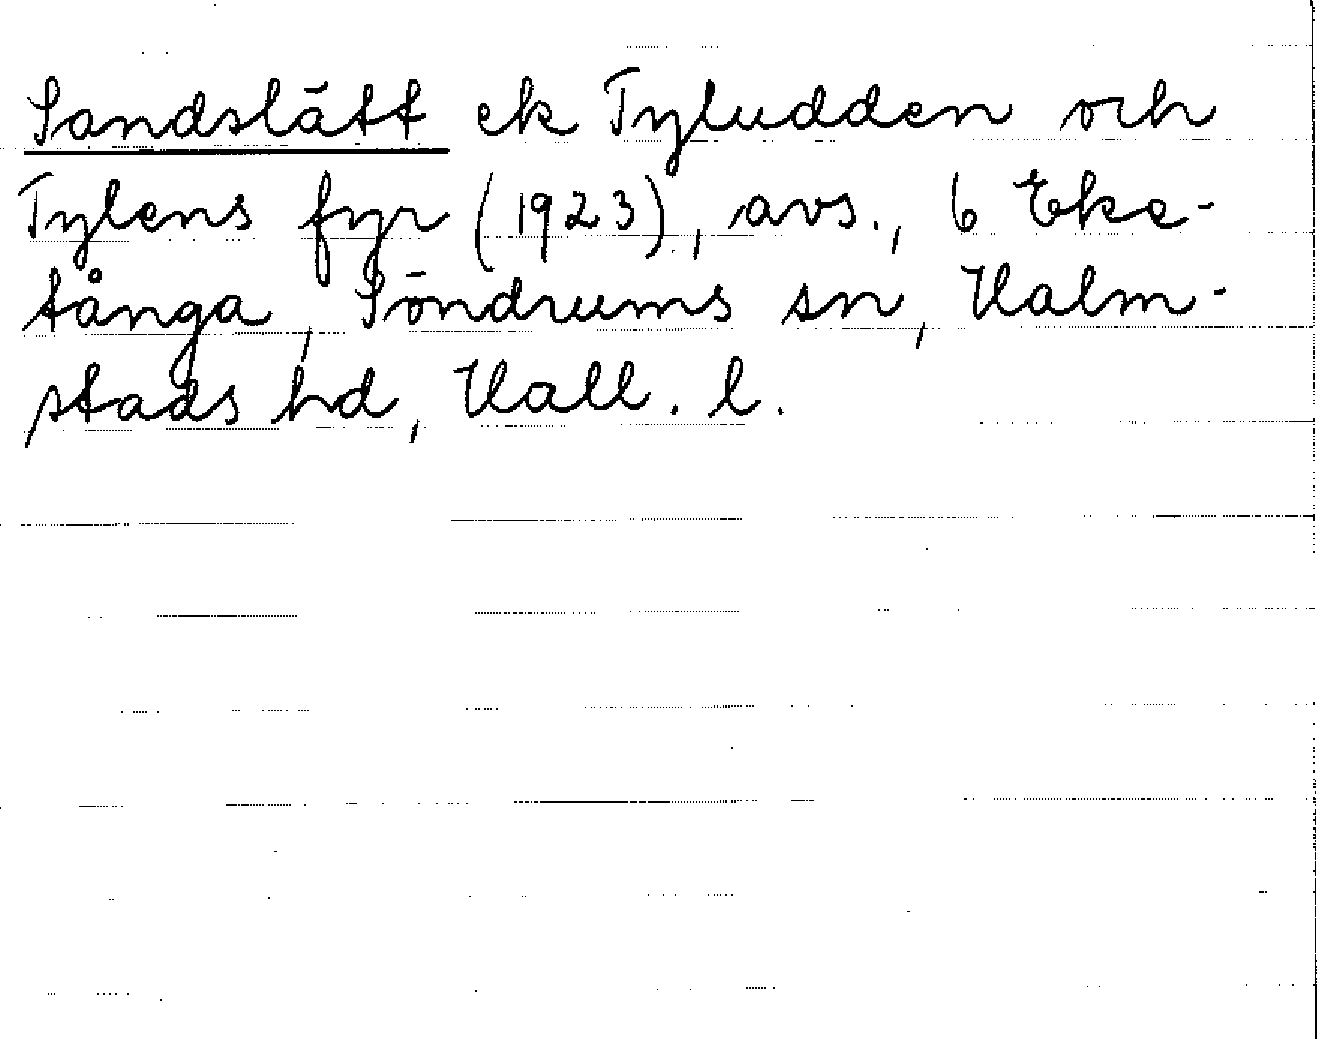 Sandslätt ek Tyludden och
Tylens fyr (1923), avs., 6 Eke-
tånga, Söndrums sn, Halm-
stads hd, Hall. l.